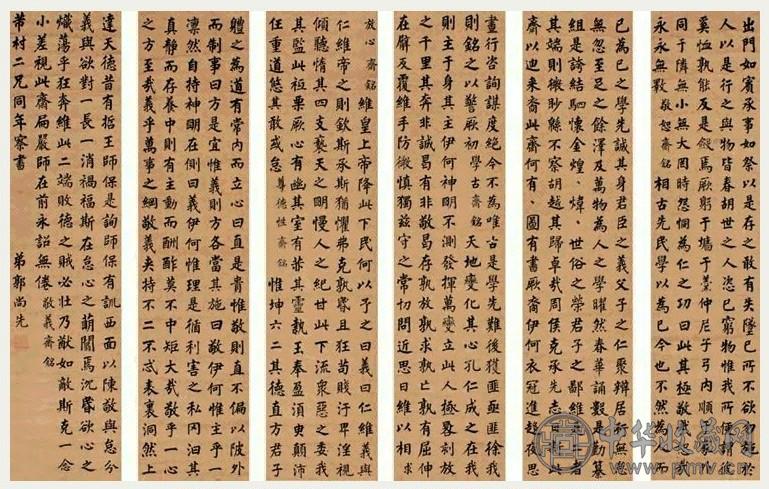 出門如賓承事如祭以是存之敢有失墜已所不欲勿施於
人以是行之與物皆春胡世之人恣已窮物惟我所便謂彼
奚恤孰能反是斂焉厥躬于墻于羹仲尼子弓內順於家
同于隣無小無大罔時怨恫為仁之功曰此其極敬哉恕哉
永永無斁 敬恕齋銘 相古先民學以為已今也不然為人而
已為已之學先誠其身君臣之義父子之仁聚辨居行無怠
無忽至足之餘澤及萬物為人之學曄然春華誦數是勤纂
組是誇結駟懷金煌〻煒〻世俗之榮君子之鄙維是二者
其端則微眇綿不察胡越其歸卓哉周侯克承先志日新此
齋以迪來裔此齋何有有圖有書厥裔伊何衣冠進趨夜思
晝行咨詢謀度絕今不為唯古是學先難後獲匪亟匪徐我
則銘之以警厥初學古齋銘 天地變化其心孔仁成之在我
則主于身其主伊何神明不測發揮萬變立此人極晷刻放
之千里其奔非誠曷有非敬曷存孰放孰求孰亡孰有屈伸
在臂反覆維手防微慎獨茲守之常切問近思曰維以相求
放心齋銘 維皇上帝降此下民何以予之曰義曰仁維義與
仁維帝之則欽斯承斯猶懼弗克孰昏且狂苟賤汙卑淫視
傾聽惰其四支褻天之明慢人之紀甘此下流衆惡之委我
其監此祗栗厥心有幽其室有赫其靈執玉奉盈須臾顛沛
任重道悠其敢或怠 尊德性齋銘 惟坤六二其德直方君子
體之為道有常內而立心曰直是貴惟敬則直不偏以陂外
而制事曰方是宜惟義則方各當其施曰敬伊何惟主乎一
凜然自持神明在側曰義伊何惟理是循利害之私罔汨其
真靜而存養中則有主動而酬酢莫不中矩大哉敬乎一心
之方至哉義乎萬事之綱敬義夾持不二不忒表裏洞然上
達天德昔有哲王師保是詢師保有訓西面以陳敬與怠分
義與欲對一長一消禍福斯在怠心之萌闒焉沉昏欲心之
熾蕩乎狂奔維此二端敗德之賊必壯乃猷如敵斯克一念
小差視此齋扁嚴師在前永詔無倦 敬義齋銘
芾村二兄同年察書 弟郭尚先
中华收藏网
www.pmv.cn